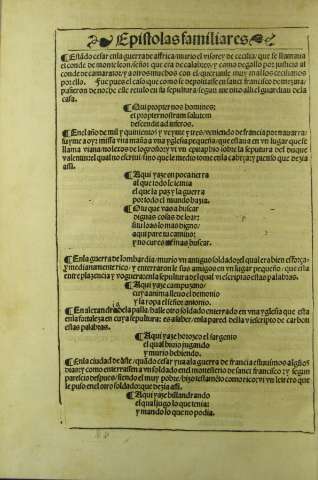 Epistolas familiares
¶Estãdo cesar enla guerra de affrica/murio el visorey de cecilia: que se llamaua
el conde de monteleon.señor que era de calabres: y como degollo por justicia al
conde de camarato: y a otros muchos con el: querianle muy mal los cecilianos
por ello. Fue pues el caso que como se depositasse en sanct francisco de meçina/
pusieron de noche este retulo en su sepultura: segun me dixo alli el guardian de la
casa.
¶Qui propter nos homines:
et propter nostram salutem
descendit ad inferos.
¶En el año de mil y quinientos y veynte y tres/viniendo de francia por nauarra:
fuyme a oyr missa vna mañana a vna yglesia pequeña: que estaua en vn lugar que se
llama viana/no lexos de logroño: y vi vn epitaphio sobre la sepultura del duque
valentin: el qual no escriui/sino que le medio tome en la cabeça: y pienso que dezia
assi.
¶Aqui yaze en poca tierra
al que todo le temia
el que la paz y la guerra
por todo el mundo hazia.
¶O tu que vas a buscar
dignas cosas de loar:
si tu loas lo mas digno/
aqui pare tu camino:
y no cures de mas buscar.
¶En la guerra de lombardia/murio vn antiguo soldado: el qual era bien esforça-
do/y medianamente rico: y enterraron le sus amigos en vn lugar pequeño: que esta
entre plazencia y voguera: en la sepultura del qual vi escriptas estas palabras.
¶Aqui yaze campuzano/
cuya anima lleuo el demonio
y la ropa el señor antonio.
¶En alexandria dela palla/halle otro soldado enterrado en vna yglesia que esta
enla fortaleza en cuya sepultura: es a saber/enla pared della vi escripto de carbon
estas palabras.
¶Aqui yaze horozco el sargento
el qual biuio jugando
y murio bebiendo.
¶En la ciudad de aste/quãdo cesar yua ala guerra de francia estuuimos algũos
dias: y como enterrassen a vn soldado en el monesterio de sanct francisco: y segun
parescio despues/siendo el muy pobre/hizo testamẽto como rico: vi vn letrero que
le puso en el otro soldado: que dezia assi.
¶Aqui yaze billandrando
el qual jugo lo que tenia:
y mando lo que no podia.